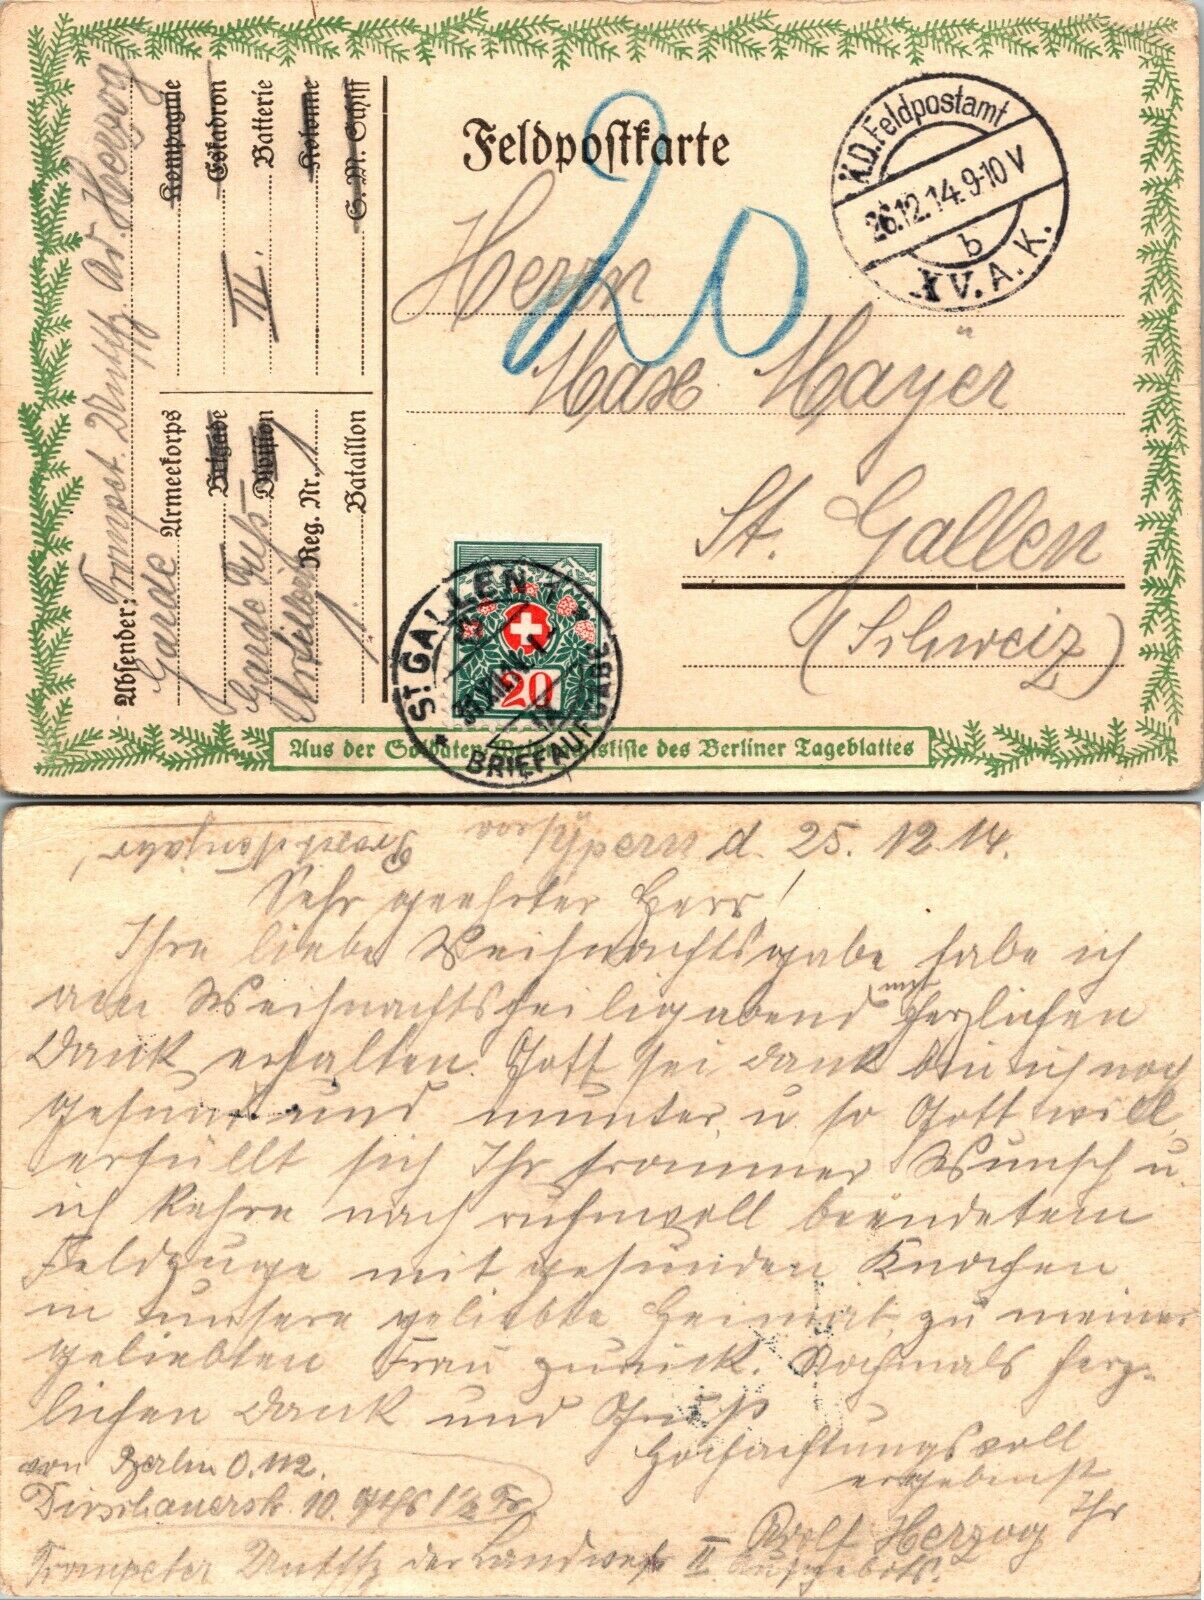 Feldpostkarte
K.D.Feldpostamt
26.12.14.9-10 V
b
XV.A.K.
20
Herrn
Max Mayer
St. Gallen
(Schweiz)
Absender: Trompet. Untffz. Ad. Herzog
Kompagnie
Eskadron
III. Batterie
Kolonne
S.M. Schiff
Garde Armeekorps
Brigade
Garde Fuß Division
Artillerie Reg. Nr. 1
Bataillon
ST. GALLEN 1
20
BRIEFAUFGABE
Aus der Soldaten-Weihnachtskiste des Berliner Tageblattes
Prosit Neujahr!
Ypern d. 25. 12. 14.
Sehr geehrter Herr!
Ihre liebe Weihnachtsgabe habe ich
am Weihnachtsheiligabend mit herzlichen
Dank erhalten. Gott sei dank bin ich noch
gesund und munter u so Gott will,
erfüllt sich Ihr frommer Wunsch u.
ich kehre nach ruhmvoll beendetem
Feldzuge mit gesunden Knochen
in unsere geliebte Heimat, zu meiner
geliebten Frau zurück. Nochmals herz-
lichen Dank und Gruß
Hochachtungsvoll
ergebenst
Ihr
Adolf Herzog
von Berlin O.112.
Dirschauerstr. 10.
Trompeter Untffz der Landwehr II Aufgebots.